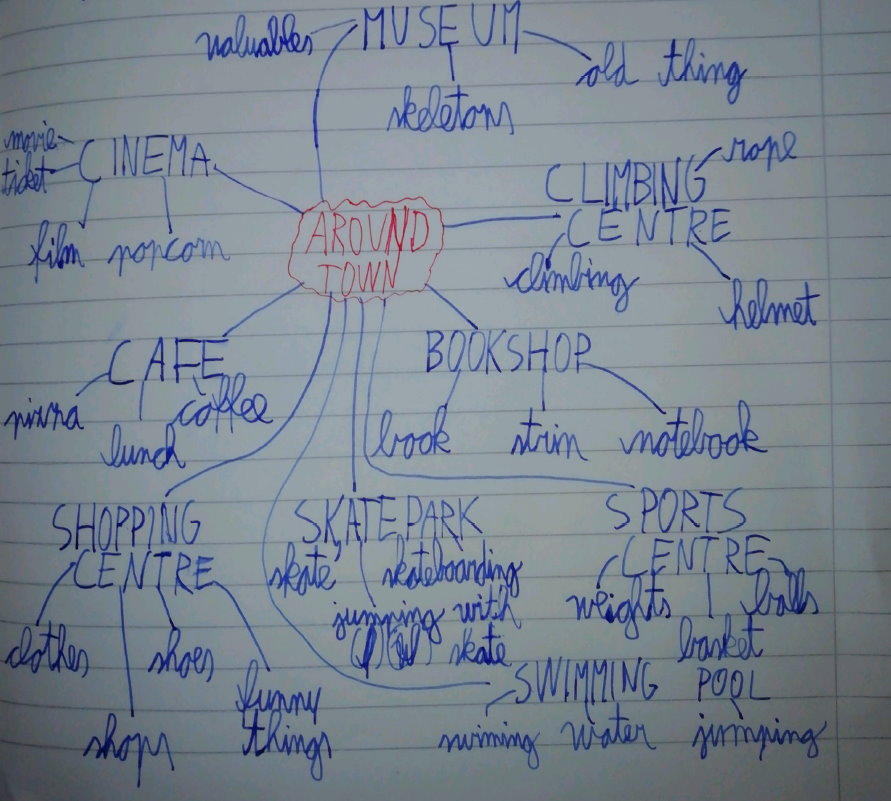 valuables MUSEUM
old thing
skeletons
movie
ticket
CINEMA
film popcorn
CLIMBING rope
CENTRE
climbing
helmet
AROUND
TOWN
CAFE
pizza
lunch
coffee
BOOKSHOP
book strim notebook
SHOPPING
CENTRE
clothes shoes
shops
funny
things
SKATEPARK
skate skateboarding
jumping with
skate
SPORTS
CENTRE
weights balls
basket
SWIMMING POOL
swiming water jumping